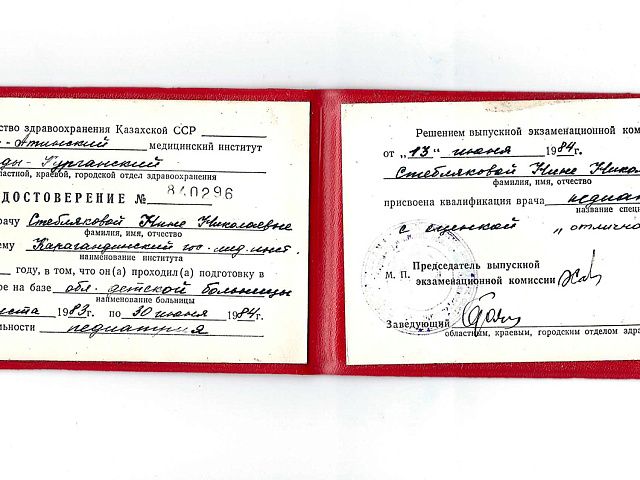 ство здравоохранения Казахской ССР
-Атинский медицинский институт
ды-Курганский
ластной, краевой, городской отдел здравоохранения
ДОСТОВЕРЕНИЕ № 840296
рачу Стебляковой Нине Николаевне
фамилия, имя, отчество
ему Карагандинский гос. мед. инст.
наименование института
году, в том, что он(а) проходил(а) подготовку в
ре на базе обл. детской больницы
наименование больницы
уста 1983 г. по 30 июня 1984 г.
льности педиатрия
Решением выпускной экзаменационной ком
от „13" июня 1984 г.
Стебляковой Нине Никол
фамилия, имя, отчество
присвоена квалификация врача педиат
название спец
с оценкой „отлично
М. П. Председатель выпускной
экзаменационной комиссии
Заведующий
областным, краевым, городским отделом здра